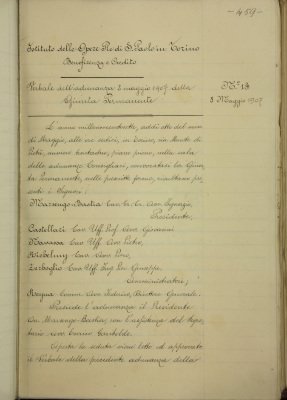 -459-
Istituto delle Opere Pie di S. Paolo in Torino
Beneficenza e Credito
Verbale dell'adunanza 8 maggio 1907 della
Giunta Permanente
N.° 13
8 Maggio 1907
L'anno millenovecentosette, addì otto del mese
di Maggio, alle ore in Torino, via Monte di
Pietà, numero trentadue, piano primo, nella sala
delle adunanze Consigliari, convocatasi la Giun-
ta Permanente, nelle prescritte forme, risultano pre-
senti i Signori:
Marsengo Bastia Avv. Ignazio,
Presidente;
Castellari Cav. Uff. Prof. Avv. Giovanni
Ravassa Cav. Uff. Avv. Pietro,
Cav. Avv. Pino,
Cav. Uff. Ing. Giuseppe,
Amministratori;
Comm. Avv. Federico, Direttore Generale.
Presiede l'adunanza il Presidente
Marsengo Bastia, con l'assistenza del Segre-
tario Enrico Garibaldi.
Aperta la seduta viene letto ed approvato
il Verbale della precedente adunanza della